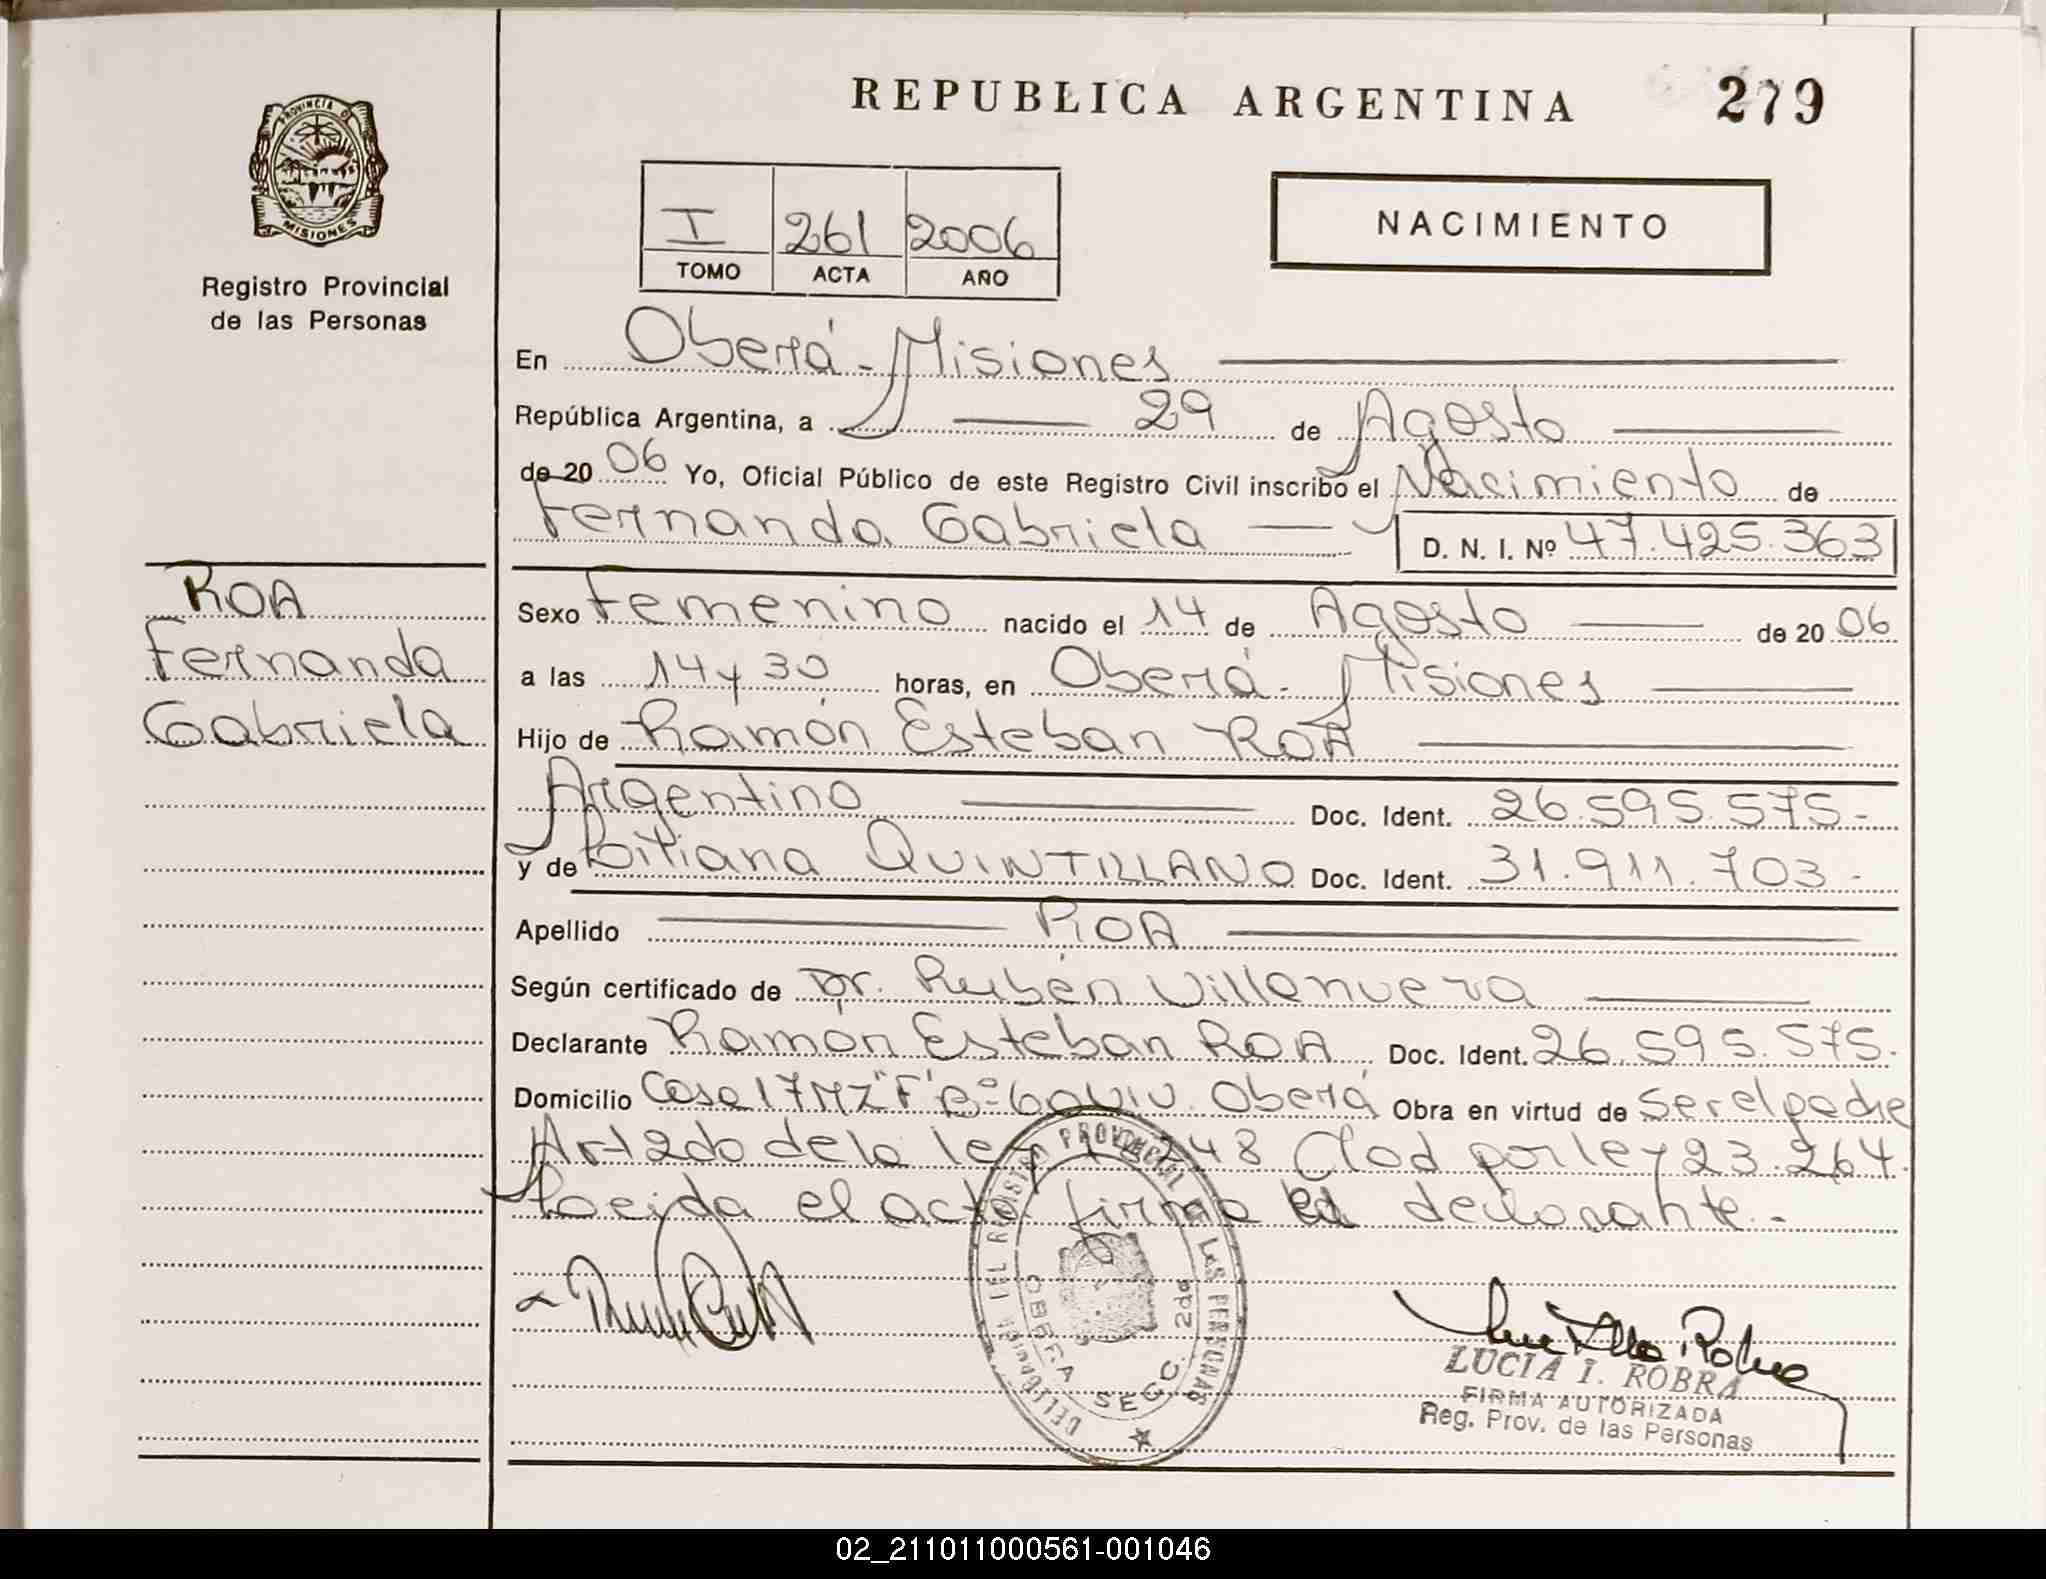 REPUBLICA ARGENTINA 279
PROVINCIA DE
MISIONES
Registro Provincial
de las Personas
I 261 2006
TOMO ACTA AÑO
NACIMIENTO
En Oberá - Misiones
República Argentina, a 29 de Agosto
de 20 06 Yo, Oficial Público de este Registro Civil inscribo el Nacimiento de
Fernanda Gabriela D. N. I. Nº 47.425.363
ROA
Fernanda
Gabriela
Sexo Femenino nacido el 14 de Agosto de 20 06
a las 14 y 30 horas, en Oberá - Misiones
Hijo de Ramón Esteban ROA
Argentino Doc. Ident. 26.595.575-
y de QUINTILLANO Doc. Ident. 31.911.703-
Apellido ROA
Según certificado de Dr. Rubén Villanueva
Declarante Ramón Esteban ROA Doc. Ident. 26.595.575.
Domicilio Casa 17 MZ "F" Bº 60 Viv. Oberá Obra en virtud de Ser el padre
Art 2do de la ley 18248 Mod por ley 23.264.
Leida el acta firma el declarante.-
DELEGACION DEL REGISTRO PROVINCIAL DE LAS PERSONAS
OBERA SECC. 2da
LUCIA I. ROBRA
FIRMA AUTORIZADA
Reg. Prov. de las Personas
02_211011000561-001046